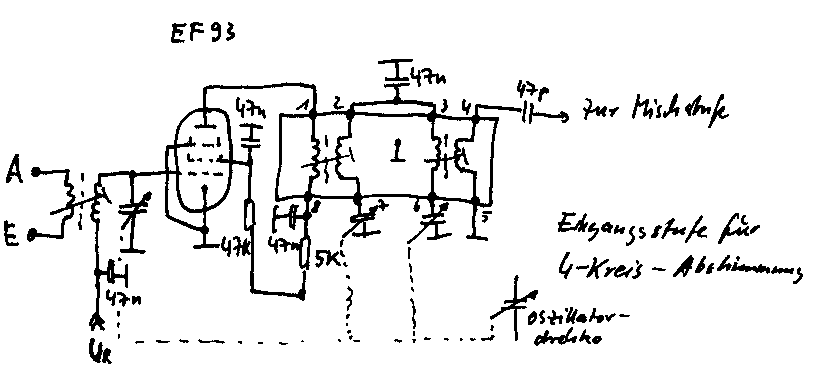 EF93
47n
47n
1
2
3
4
47p
zur Mischstufe
A
1
E
47K
47n
8
7
6
5
5K
Eingangsstufe für
4-Kreis-Abstimmung
47n
Oszillator-
drehko
UR